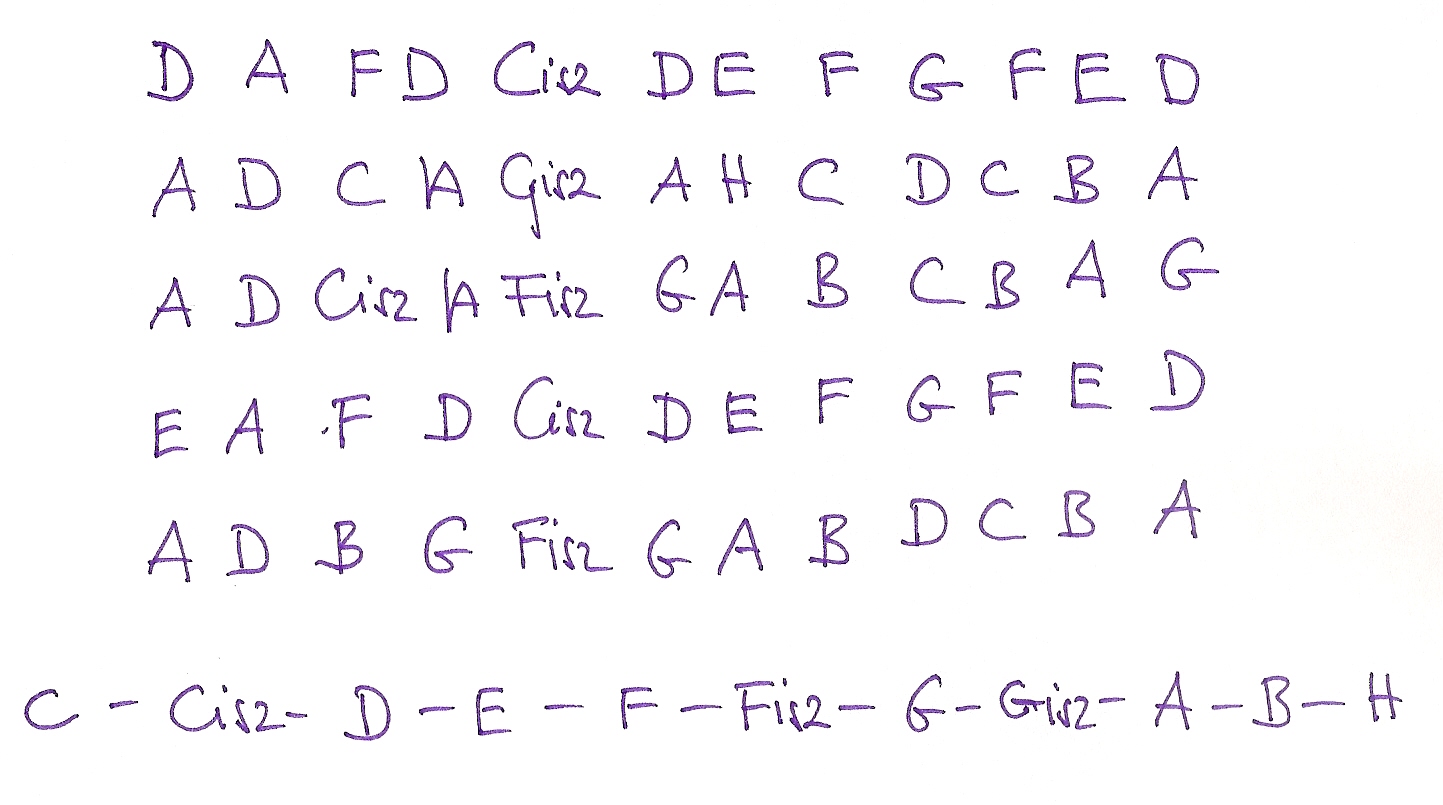 D A F D Cisz D E F G F E D
A D C A Gisz A H C D C B A
A D Cisz A Fisz G A B C B A G
E A F D Cisz D E F G F E D
A D B G Fisz G A B D C B A
C - Cisz - D - E - F - Fisz - G - Gisz - A - B - H